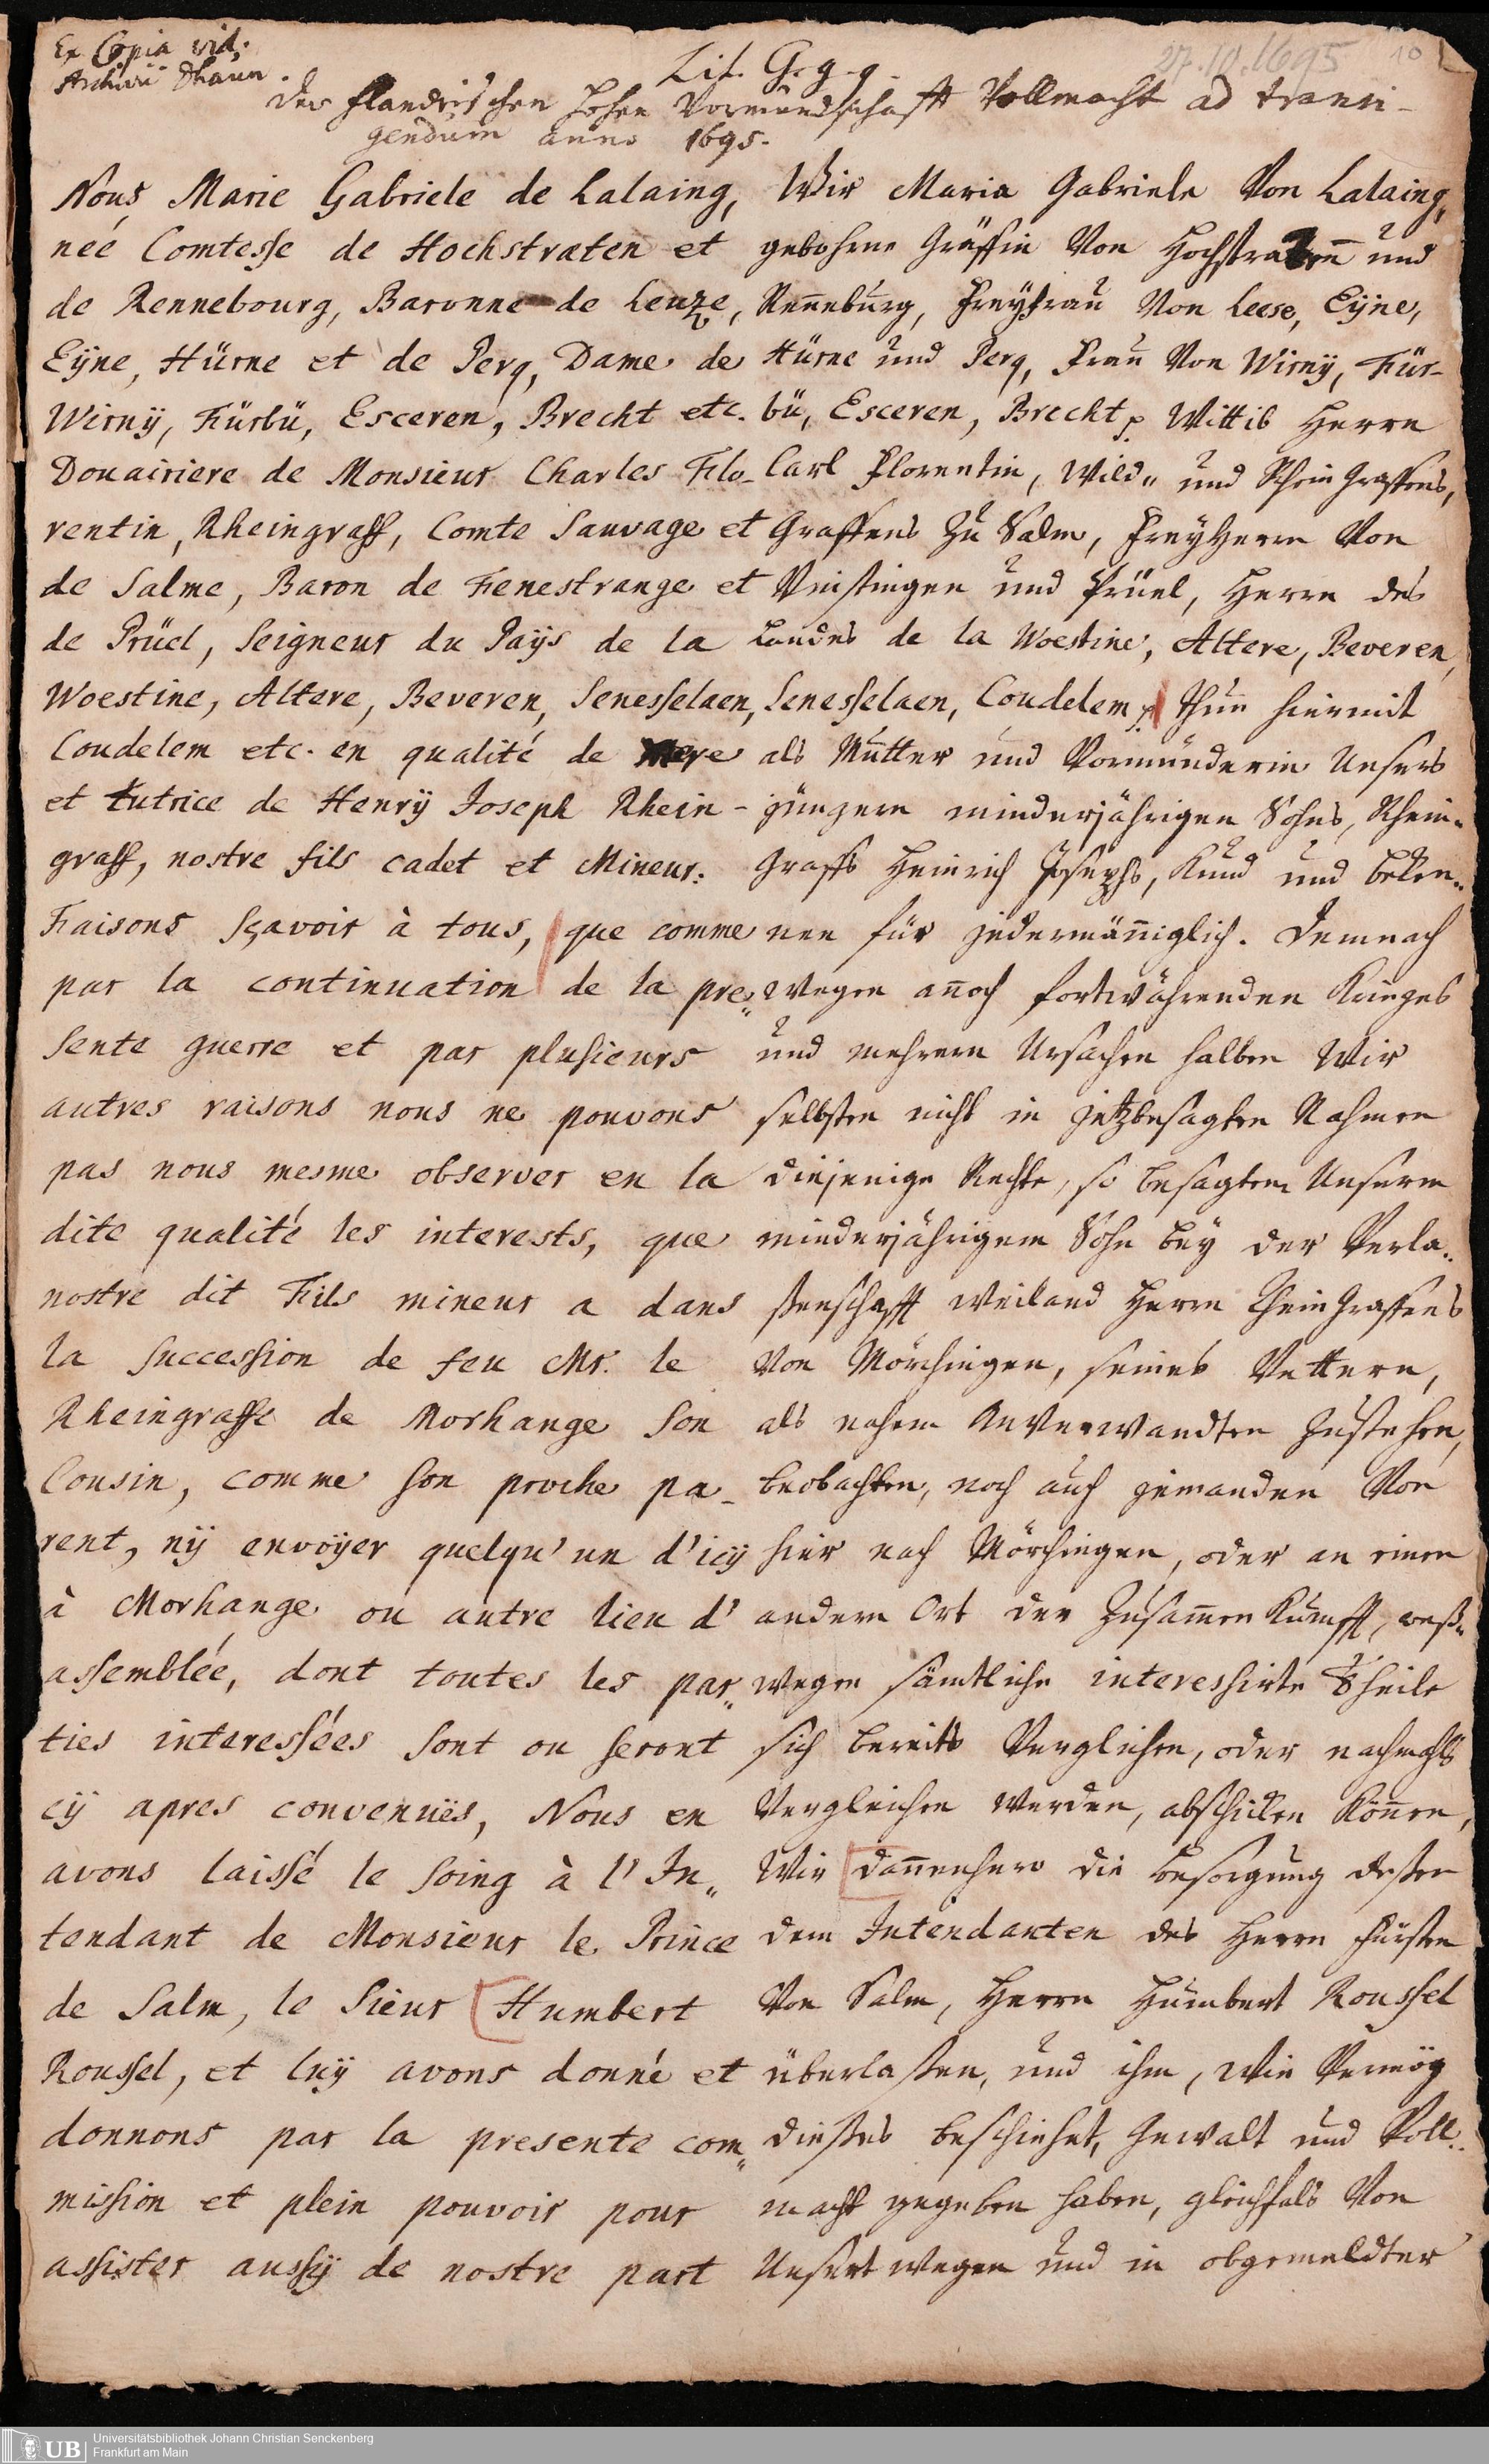 Ex Copia vid.
Archivi Dhaun.
27.10.1695
10
Lit. G.g.g.
Der Flandrischen hohen Vormundschafft Vollmacht ad transi-
gendum anno 1695.
Nous Marie Gabriele de Lalaing,
neé Comtesse de Hochstraten et
de Rennebourg, Baronne de Leuze,
Eijne, Hürne et de Perq, Dame de
Wirnÿ, Fürbü, Esceren, Brecht etc.
Douairiere de Monsieur Charles Flo-
rentin, Rheingraff, Comte Sauvage et
de Salme, Baron de Fenestrange et
de Prüel, Seigneur du Païjs de la
Woestine, Altere, Beveren, Senesselaen,
Coudelem etc. en qualité de mere
et tutrice de Henrÿ Joseph Rhein-
graff, nostre fils cadet et Mineur:
Faisons sçavoir à tous, que comme
par la continuation de la pre„
sente guerre et par plusieurs
autres raisons nous ne pouvons
pas nous mesme observer en la
dite qualité les interests, que
nostre dit Fils mineur a dans
la succession de feu Mr. le
Rheingraffe de Morhange son
Cousin, comme son proche pa-
rent, nÿ envoÿer quelqu'un d'icÿ
à Morhange ou autre lieu d'
assemblée, dont toutes les par„
ties interessées sont ou seront
cÿ apres convenuës, Nous en
avons laissé le soing à l'In„
tendant de Monsieur le Prince
de Salm, le Sieur Humbert
Roussel, et luÿ avons donné et
donnons par la presente com„
mission et plein pouvoir pour
assister aussÿ de nostre part
Wir Maria Gabriele Von Lalaing,
gebohrne Gräffin Von Hochstraten und
Renneburg, Freyfrau Von Leese, Eijne,
Hürne und Perq, Frau Von Wirnÿ, Für-
bü, Esceren, Brecht p. Wittib Herrn
Carl Florentin, Wild„ und Rhein Graffens,
Graffens zu Salm, FreyHerrn Von
Vinstingen und Prüel, Herrn des
Landes de la Woestine, Altere, Beveren,
Senesselaen, Coudelem p. thun hiermit
als Mutter und Vormünderin Unsers
jüngern minderjährigen Sohns, Rhein„
Graffs Heinrich Josephs, Kund und beken„
nen für jedermänniglich. Demnach
wegen annoch fortwährenden Krieges
und mehrern Ursachen halben Wir
selbsten nicht in jetzbesagten Nahmen
diejenige Rechte, so besagtem Unserm
minderjährigem Sohn bey der Verla„
ßenschafft weiland Herrn Rhein Graffens
Von Mörchingen, seines Vettern,
als nahem Anverwandten zustehen,
beobachten, noch auch jemanden Von
hier nach Mörchingen, oder an einen
andern Ort der Zusammen Kunfft, weß„
wegen sämtliche interessirte Theile
sich bereits Verglichen, oder nachmahls
Vergleichen werden, abschicken Können,
Wir dannenhero die besorgung deßen
dem Intendanten des Herrn Fürsten
Von Salm, Herrn Humbert Roussel
überlaßen, und ihm, wie Vermög
dießes beschiehet, Gewalt und Voll„
macht gegeben haben, gleichfals Von
Unsert wegen und in obgemeldter
UB Universitätsbibliothek Johann Christian Senckenberg
Frankfurt am Main